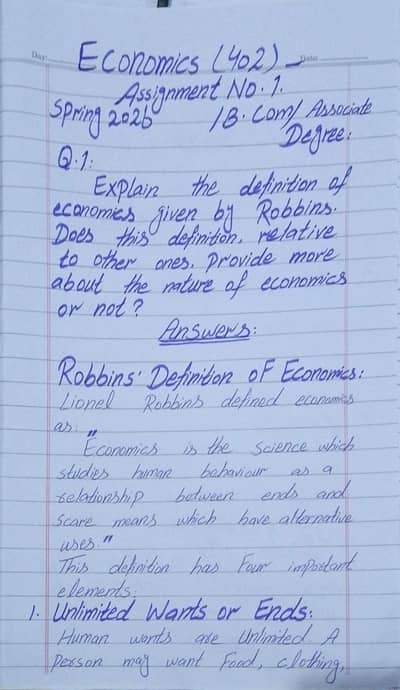 Day:
Date:
Economics (402)
Assignment No. 1.
Spring 2026 /B.Com/ Associate
Degree.
Q.1:
Explain the definition of
economics given by Robbins.
Does this definition, relative
to other ones. Provide more
about the nature of economics
or not?
Answers:
Robbins' Definition of Economics:
Lionel Robbins defined economics
as: "
Economics is the science which
studies human behaviour as a
relationship between ends and
Scare means which have alternative
uses."
This definition has Four important
elements:
1. Unlimited Wants or Ends:
Human wants are Unlimited. A
Person may want Food, clothing,